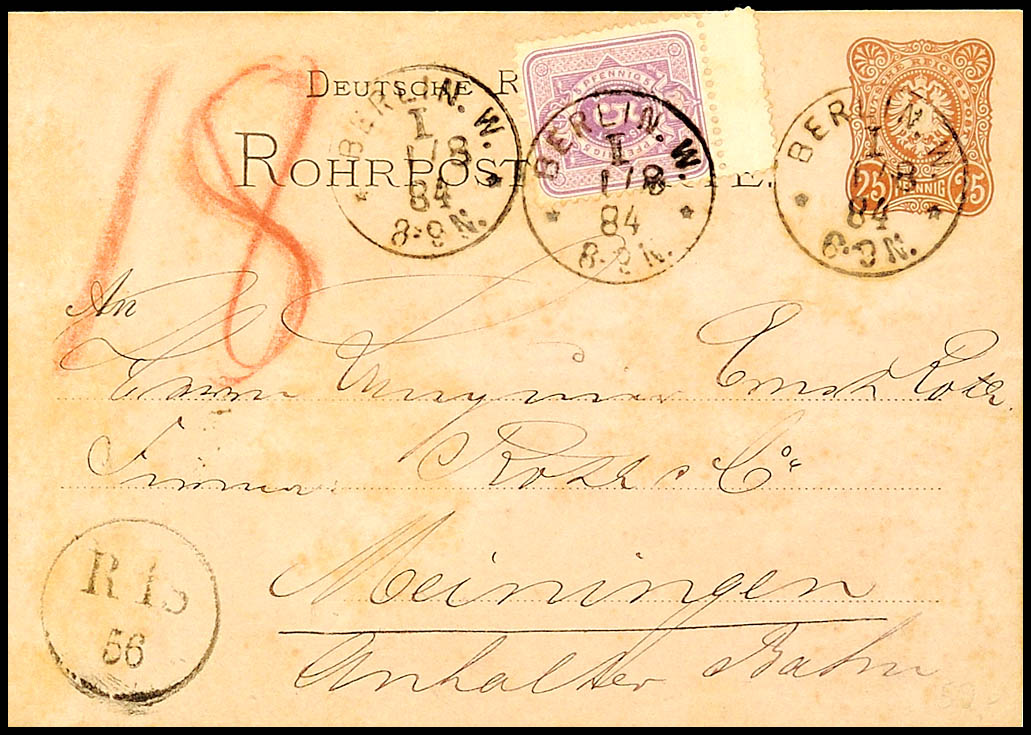 18
DEUTSCHE R
ROHRPOST
5 PFENNIG
5
BERLIN. W.
I
1/8
84
8-9 N.
BERLIN. W.
I
1/8
84
8-9 N.
BERLIN. W.
I
1/8
84
8-9 N.
DEUTSCHE REICHS-POST
25 PFENNIG 25
An
Ernst Rote
Firma: Rote & Co
Meiningen
Anhalter Bahn
R 15
56